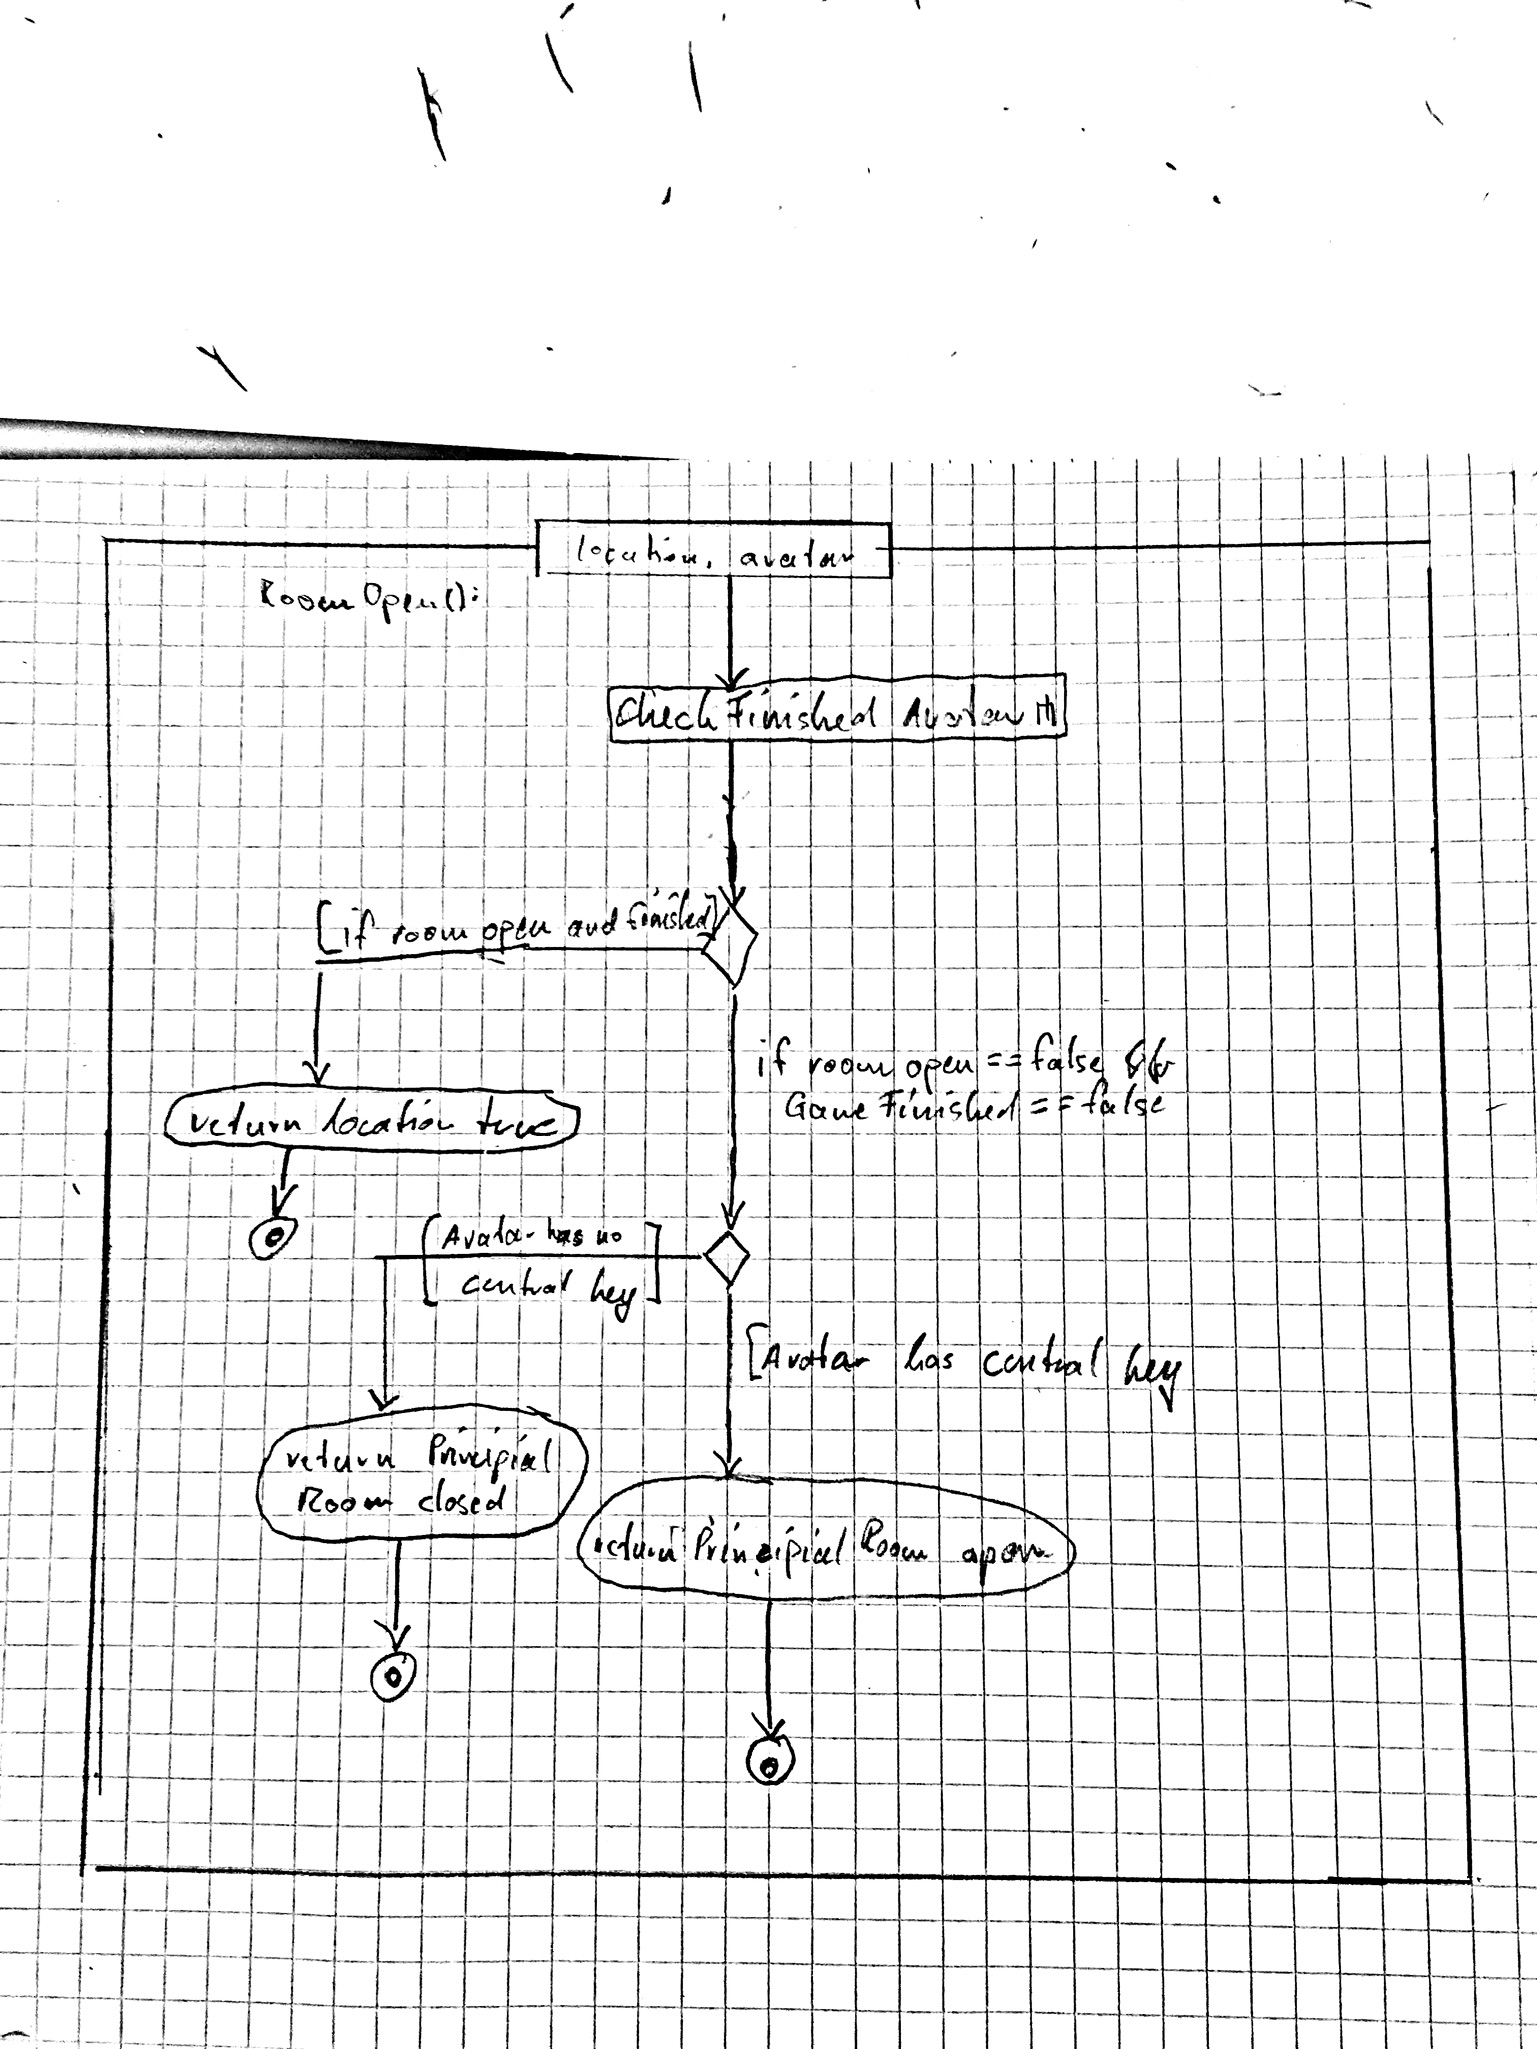 location, avatar
RoomOpen():
Check Finished Avatar
[if room open and finished]
if room open == false &&
Game Finished == false
return location true
[Avatar has no
central key]
[Avatar has central key
return Principial
Room closed
return Principial Room open